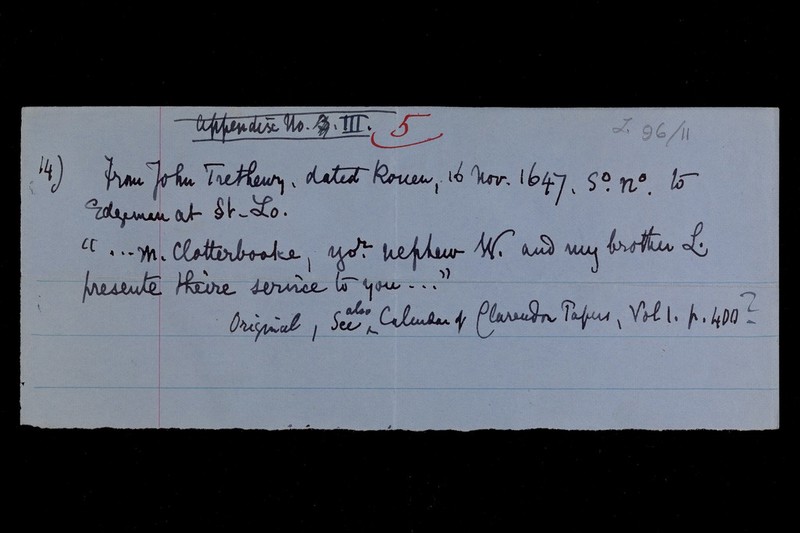 Appendix No. III. 5
L. 96/11
14) From John Trethewy, dated Rouen, 16 Nov. 1647. S.º n.º to
Edgeman at St-Lo.
"...M. Clotterbooke, yor. nephew W. and my brother L.
presente theire service to you..."
Original, See also Calendar of Clarendon Papers, Vol 1. p. 400?